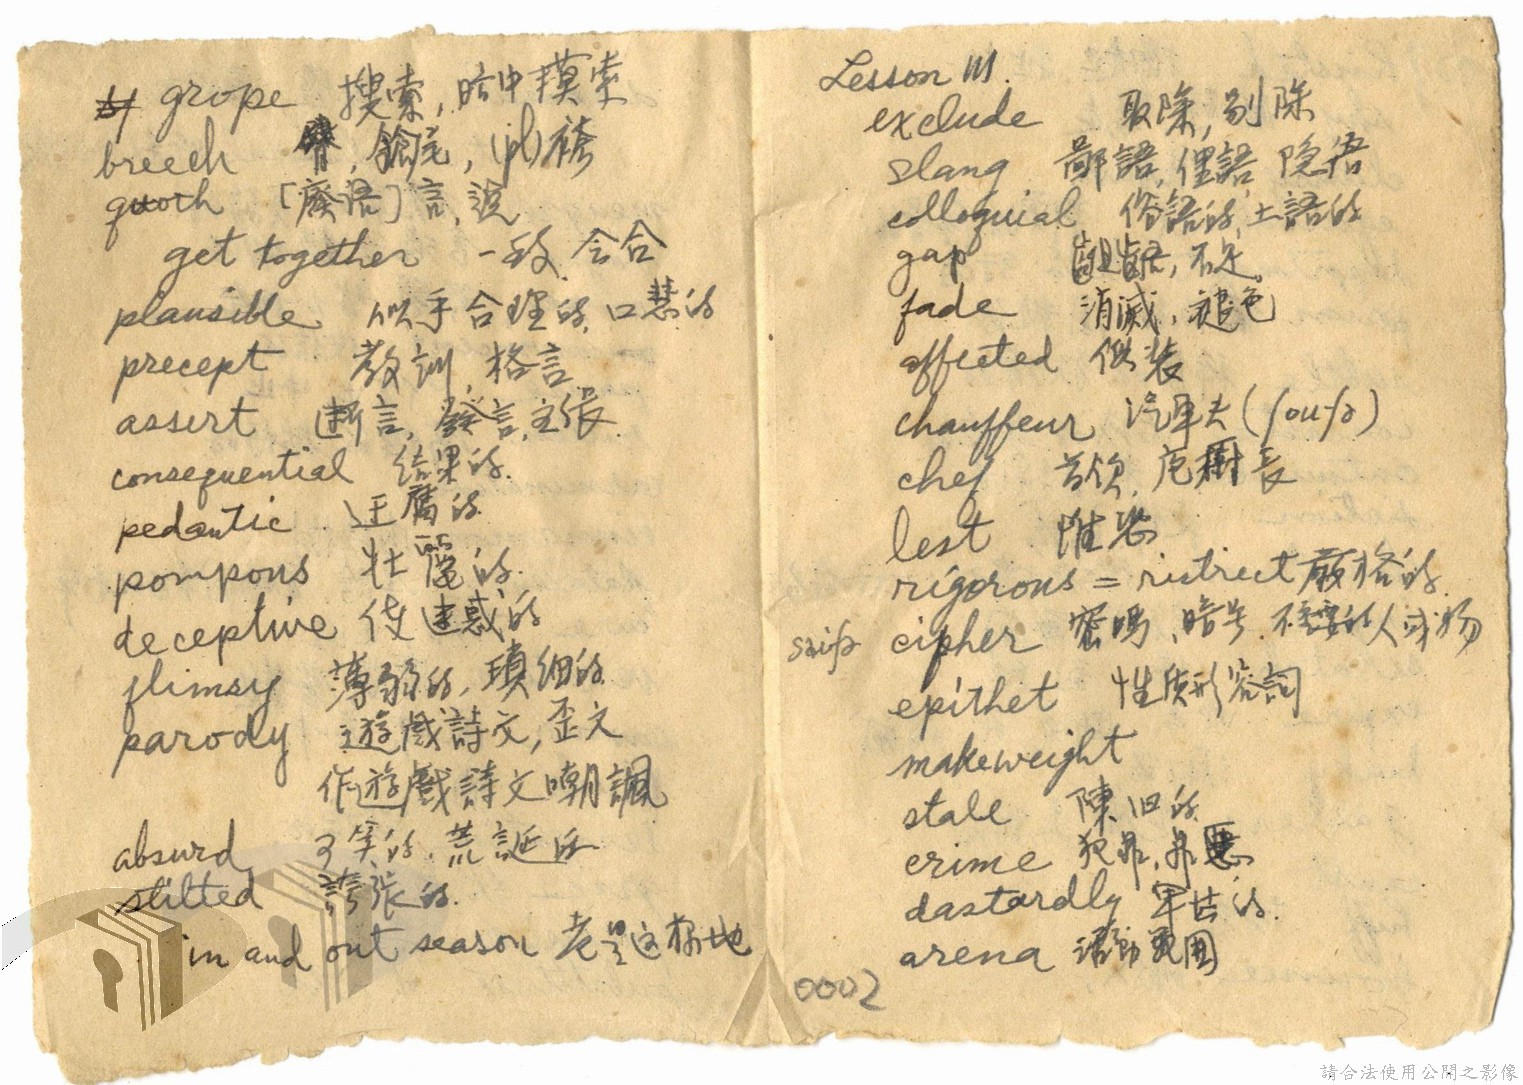 grope 搜索, 暗中摸索
breech 鎗尾, (pl) 袴
quoth [廢語] 言, 説
get together 一致, 会合
plausible 似乎合理的, 口慧的
precept 教訓, 格言
assert 断言, 發言, 主張
consequential 结果的
pedantic 迂腐的
pompous 壮麗的
deceptive 使迷惑的
flimsy 薄弱的, 瑣细的
parody 遊戲詩文, 歪文
作遊戲詩文嘲諷
absurd 可笑的, 荒誕的
stilted 誇張的
in and out season 老是这様地
Lesson III.
exclude 取除, 剔除
slang 鄙語, 俚語, 隐語
colloquial 俗語的, 土語的
gap 齟齬, 不足
fade 消滅, 褪色
affected 做装
chauffeur 汽車夫 (ʃoufə)
chef 首领, 庖廚長
lest 惟恐
rigorous = ristrect 嚴格的
saifə cipher 密嗎, 暗号, 不重要的人或物
epithet 性质形容詞
makeweight
stale 陳旧的
crime 犯罪, 罪惡
dastardly 卑怯的
arena 活動範囲
0002
請合法使用公開之影像